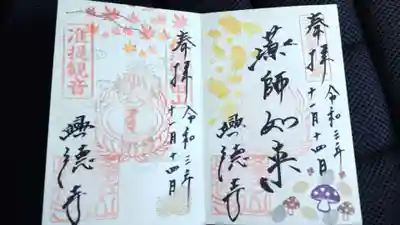 奉拝
薬師如来
令和三年
十一月十四日
興徳寺
奉拝
准提観音
令和三年
十一月十四日
興徳寺